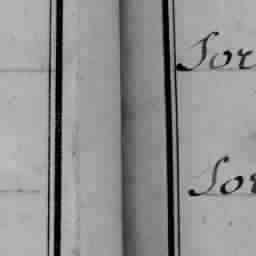 Sor
Sor